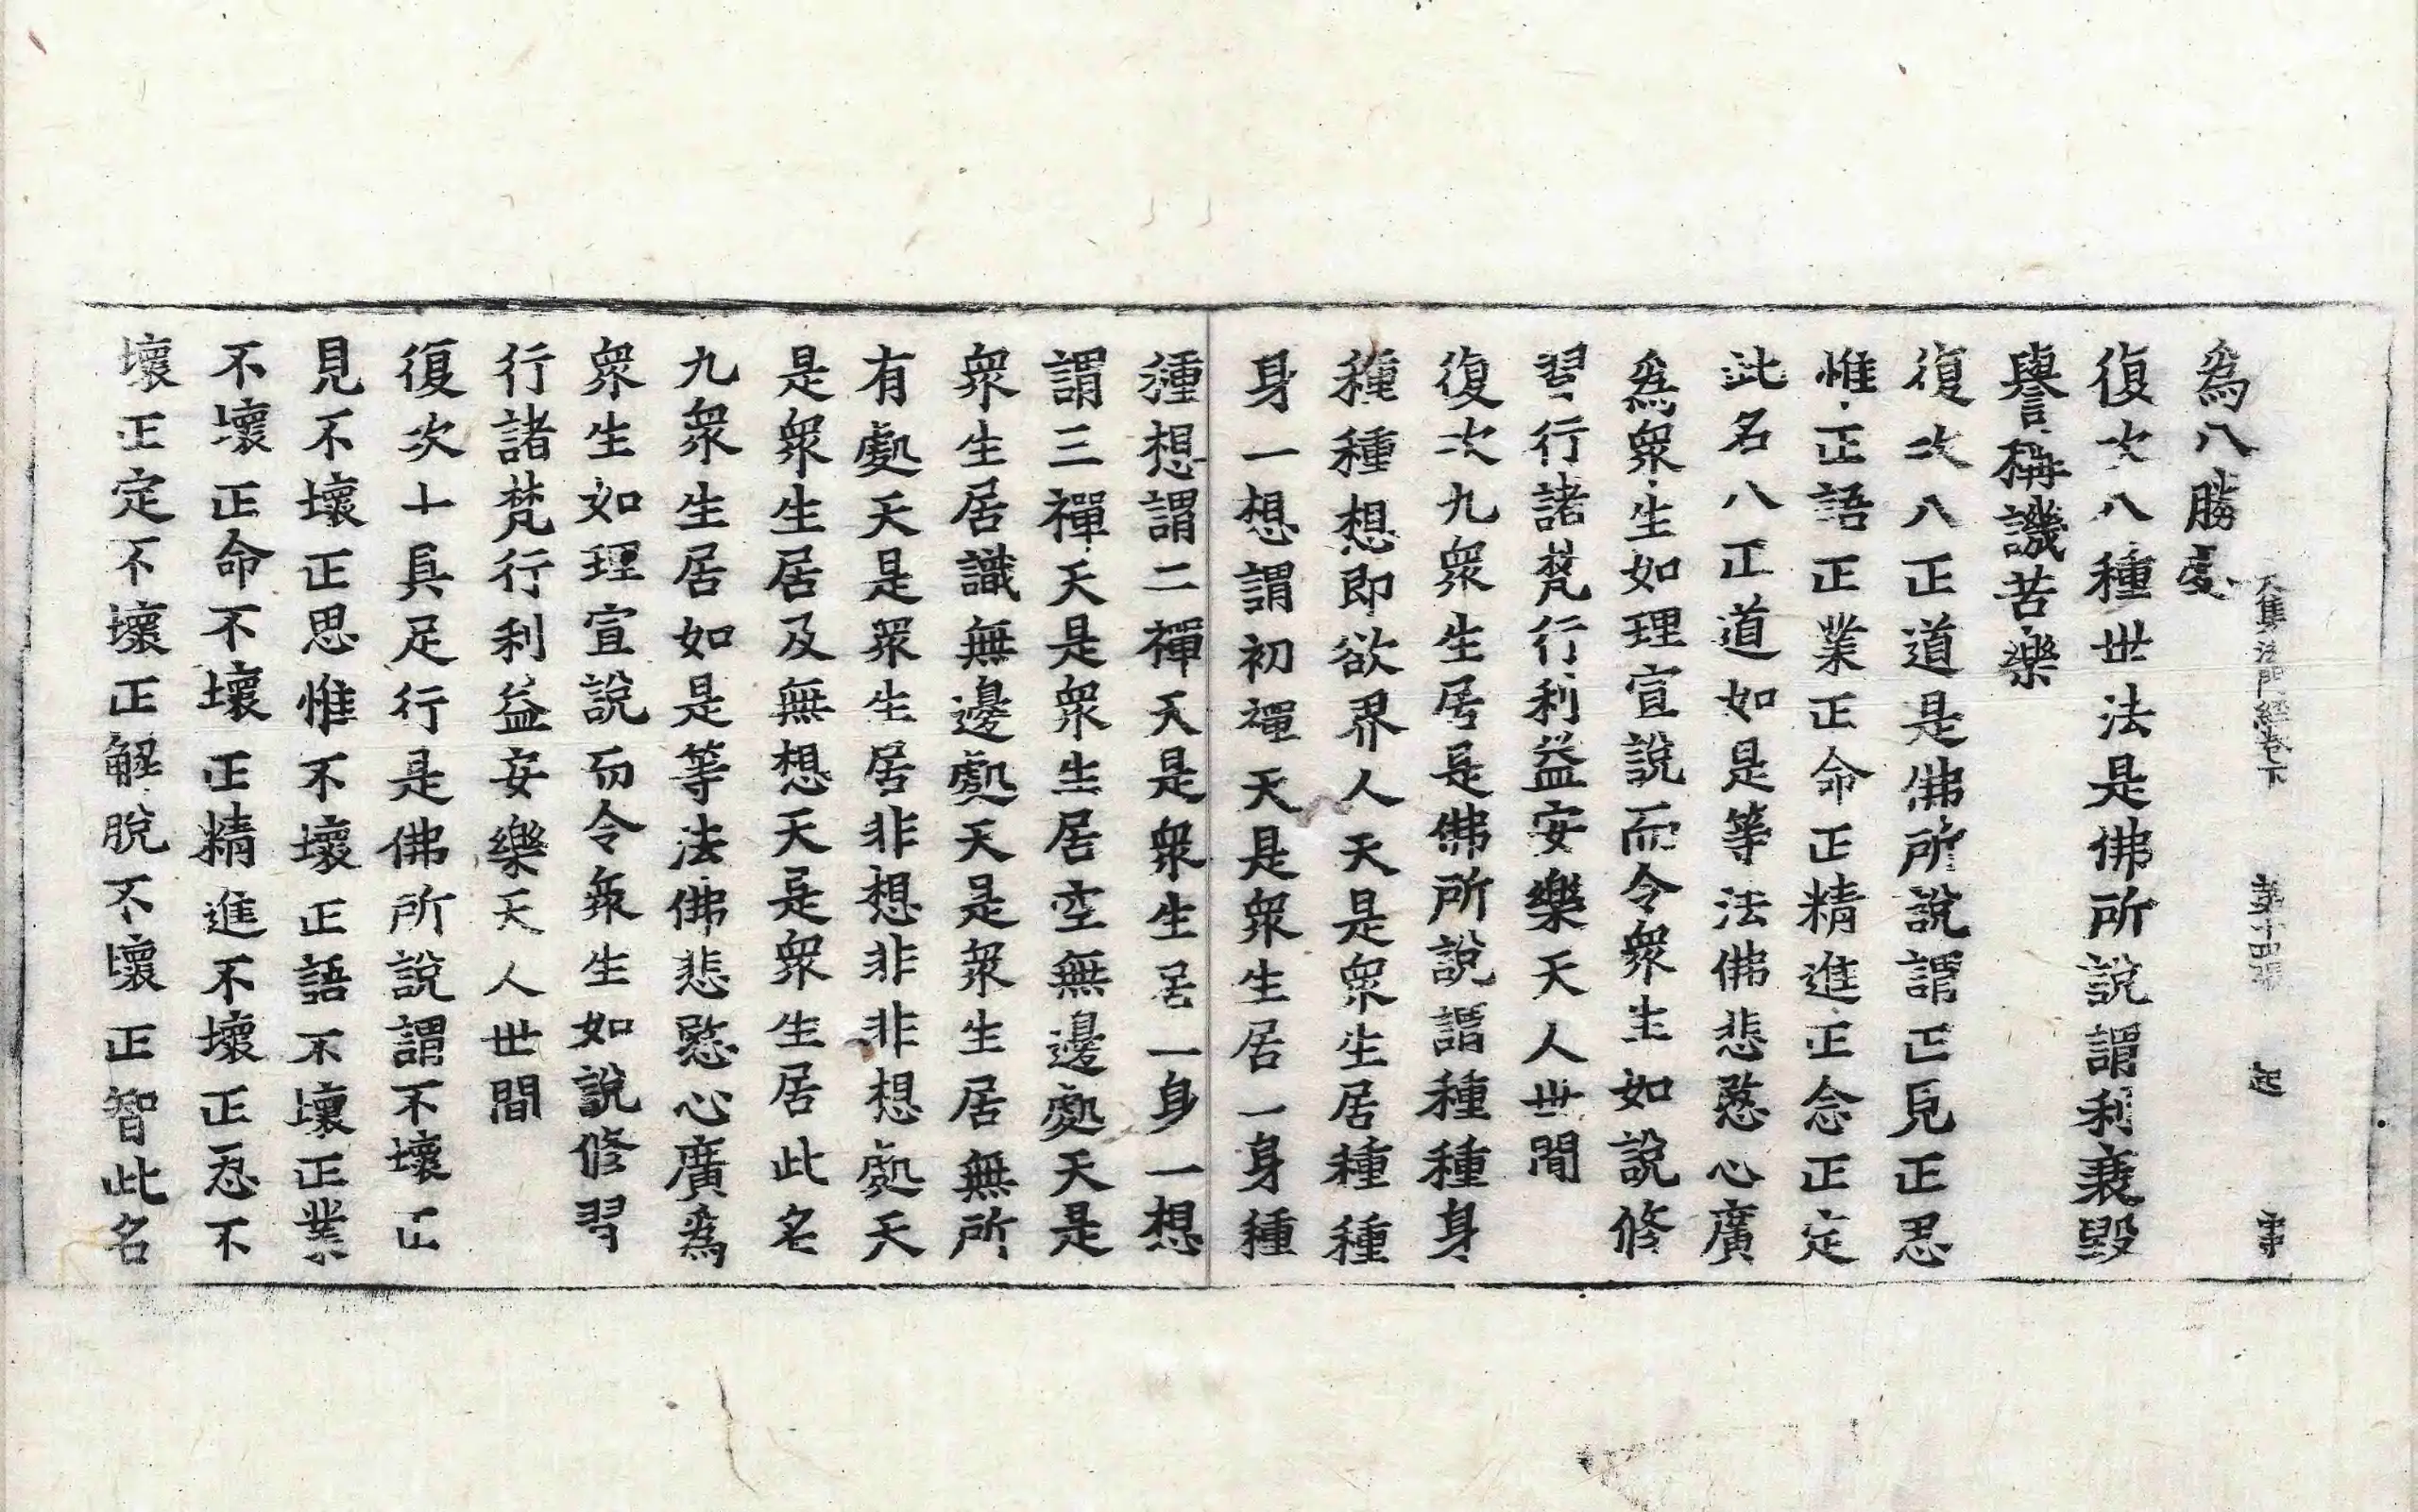 大集法門經卷下 第十四張 起
為八勝處
復次八種世法是佛所說謂利衰毀
譽稱譏苦樂
復次八正道是佛所說謂正見正思
惟正語正業正命正精進正念正定
此名八正道如是等法佛悲愍心廣
為眾生如理宣說而令眾生如說修
習行諸梵行利益安樂天人世間
復次九眾生居是佛所說謂種種身
種種想即欲界人天是眾生居種種
身一想謂初禪天是眾生居一身種
種想謂二禪天是眾生居一身一想
謂三禪天是眾生居空無邊處天是
眾生居識無邊處天是眾生居無所
有處天是眾生居非想非非想處天
是眾生居及無想天是眾生居此名
九眾生居如是等法佛悲愍心廣為
眾生如理宣說而令眾生如說修習
行諸梵行利益安樂天人世間
復次十具足行是佛所說謂不壞正
見不壞正思惟不壞正語不壞正業
不壞正命不壞正精進不壞正忍不
壞正定不壞正解脫不壞正智此名